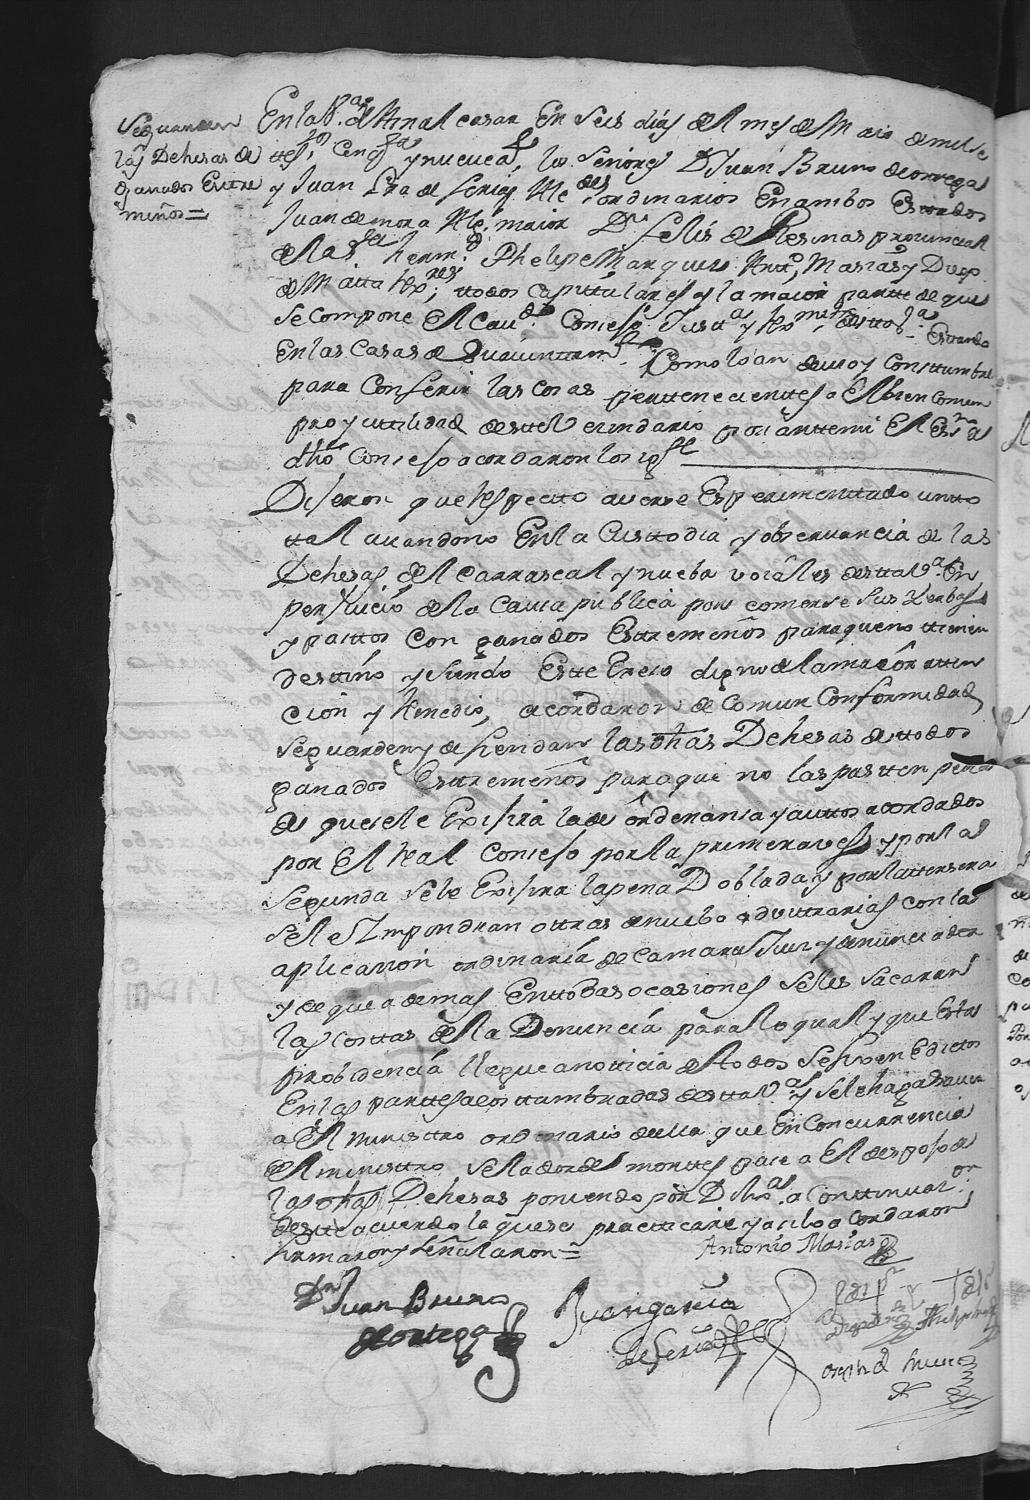 Se guarden
las Dehesas de
ganados Extre
meños =
En la V.ª de Arinal cosar En Seis dias del mes de Maio de mil se
ttez.os Cinq.ta y nueve a.s los Señores D Juan Bruno de orrega
y Juan Gra de feria Alc.des ordinarios En ambos Estados
Juan de mora Alg. maior D.n felis de Resinas provincial
de la S.ta herm.d Phelipe Marquez Antt.o Masias y Diego
de Matta Rex.res; ttodos Capittulares y la maior partte de que
Se compone El Cav.do Consejo Justt.a y Rex.mto de estta V.ª Estando
En las Casas de Aiuntam.to Como lo an de uso y Consttumbre
para Conferir las cosas perttenecienttes a El bien Comun
pro y uttilidad de estte vecindario por antte mi El Es.no de
dho Consejo acordaron lo sig.te
Dijeron que Respecto averse Esperimenttado un tto
ttal avandono En la Custtodia y observancia de las
Dehesas del Carrascal y nueba voiales de estta V.ª En
perjuicio de la Causa publica por comerse sus Yerbas
y pasttos Con ganados Esttremeños para que no ttienen
desttino y siendo Estte Exeso digno de la maior atten
cion y Remedio, acordaron de Comun Conformidad
Se guarden y defiendan las dhas Dehesas de ttodos
ganados Esttremeños para que no las pastten pena
de que se le Exijira la de ordenansa y auttos acordados
por El Real Consejo por la primera vez y por la
Segunda se le Exijira la pena Doblada y por la ttersera
se les Impondran ottras de nuebo advittrarias con la
aplicasion ordinaria de Camara Juez y denunciador
y de que ademas En ttodas ocasiones se les sacaran
las costtas de la Denuncia para lo qual y que Estta
probidencia llegue a notticia de ttodos se fijen Edictos
En las parttes acosttumbradas de estta V.ª y se le haga saver
a El ministtro ordinario de ella que En Concurrencia
del ministtro Selador de monttes pase a El despojo de
las dhas Dehesas poniendo por Dilix.as a Conttinuaz.on
de estte acuerdo la que se practticare y asi lo acordaron
firmaron y señalaron =
Antonio Masias
D.n Juan Bruno
de Orttega
Juan garcia
de feria